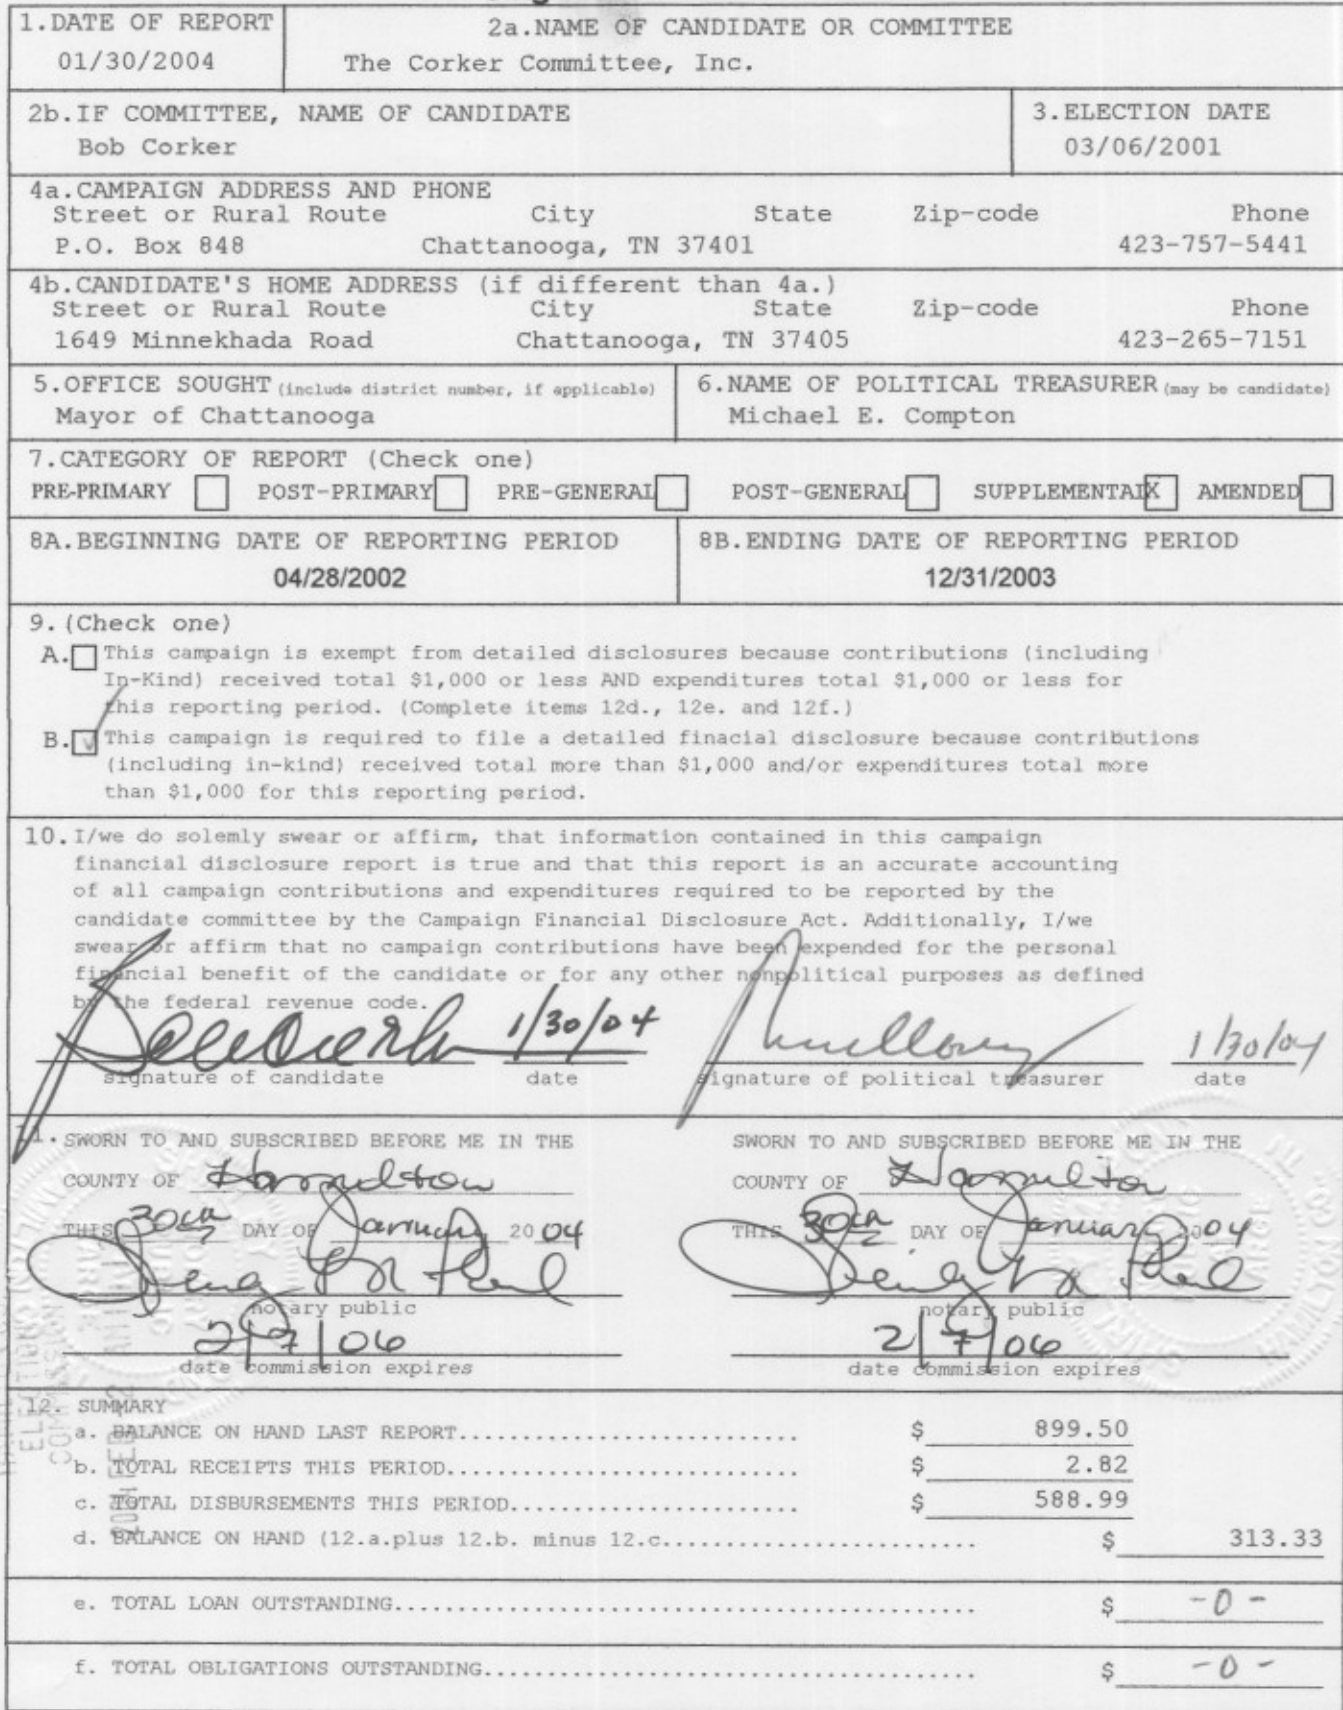 1.DATE OF REPORT
01/30/2004
2a.NAME OF CANDIDATE OR COMMITTEE
The Corker Committee, Inc.
2b.IF COMMITTEE, NAME OF CANDIDATE
Bob Corker
3.ELECTION DATE
03/06/2001
4a.CAMPAIGN ADDRESS AND PHONE
Street or Rural Route City State Zip-code Phone
P.O. Box 848 Chattanooga, TN 37401 423-757-5441
4b.CANDIDATE'S HOME ADDRESS (if different than 4a.)
Street or Rural Route City State Zip-code Phone
1649 Minnekhada Road Chattanooga, TN 37405 423-265-7151
5.OFFICE SOUGHT (include district number, if applicable)
Mayor of Chattanooga
6.NAME OF POLITICAL TREASURER (may be candidate)
Michael E. Compton
7.CATEGORY OF REPORT (Check one)
PRE-PRIMARY POST-PRIMARY PRE-GENERAL POST-GENERAL SUPPLEMENTAL X AMENDED
8A.BEGINNING DATE OF REPORTING PERIOD
04/28/2002
8B.ENDING DATE OF REPORTING PERIOD
12/31/2003
9.(Check one)
A. This campaign is exempt from detailed disclosures because contributions (including
In-Kind) received total $1,000 or less AND expenditures total $1,000 or less for
this reporting period. (Complete items 12d., 12e. and 12f.)
B. This campaign is required to file a detailed finacial disclosure because contributions
(including in-kind) received total more than $1,000 and/or expenditures total more
than $1,000 for this reporting period.
10.I/we do solemly swear or affirm, that information contained in this campaign
financial disclosure report is true and that this report is an accurate accounting
of all campaign contributions and expenditures required to be reported by the
candidate committee by the Campaign Financial Disclosure Act. Additionally, I/we
swear or affirm that no campaign contributions have been expended for the personal
financial benefit of the candidate or for any other nonpolitical purposes as defined
by the federal revenue code.
1/30/04 1/30/04
signature of candidate date signature of political treasurer date
11. SWORN TO AND SUBSCRIBED BEFORE ME IN THE
COUNTY OF Hamilton
THIS 30th DAY OF January 20 04
notary public
2/7/06
date commission expires
SWORN TO AND SUBSCRIBED BEFORE ME IN THE
COUNTY OF Hamilton
THIS 30th DAY OF January 2004
notary public
2/7/06
date commission expires
12. SUMMARY
a. BALANCE ON HAND LAST REPORT............................ $ 899.50
b. TOTAL RECEIPTS THIS PERIOD............................. $ 2.82
c. TOTAL DISBURSEMENTS THIS PERIOD........................ $ 588.99
d. BALANCE ON HAND (12.a.plus 12.b. minus 12.c.......................... $ 313.33
e. TOTAL LOAN OUTSTANDING................................................ $ -0-
f. TOTAL OBLIGATIONS OUTSTANDING......................................... $ -0-